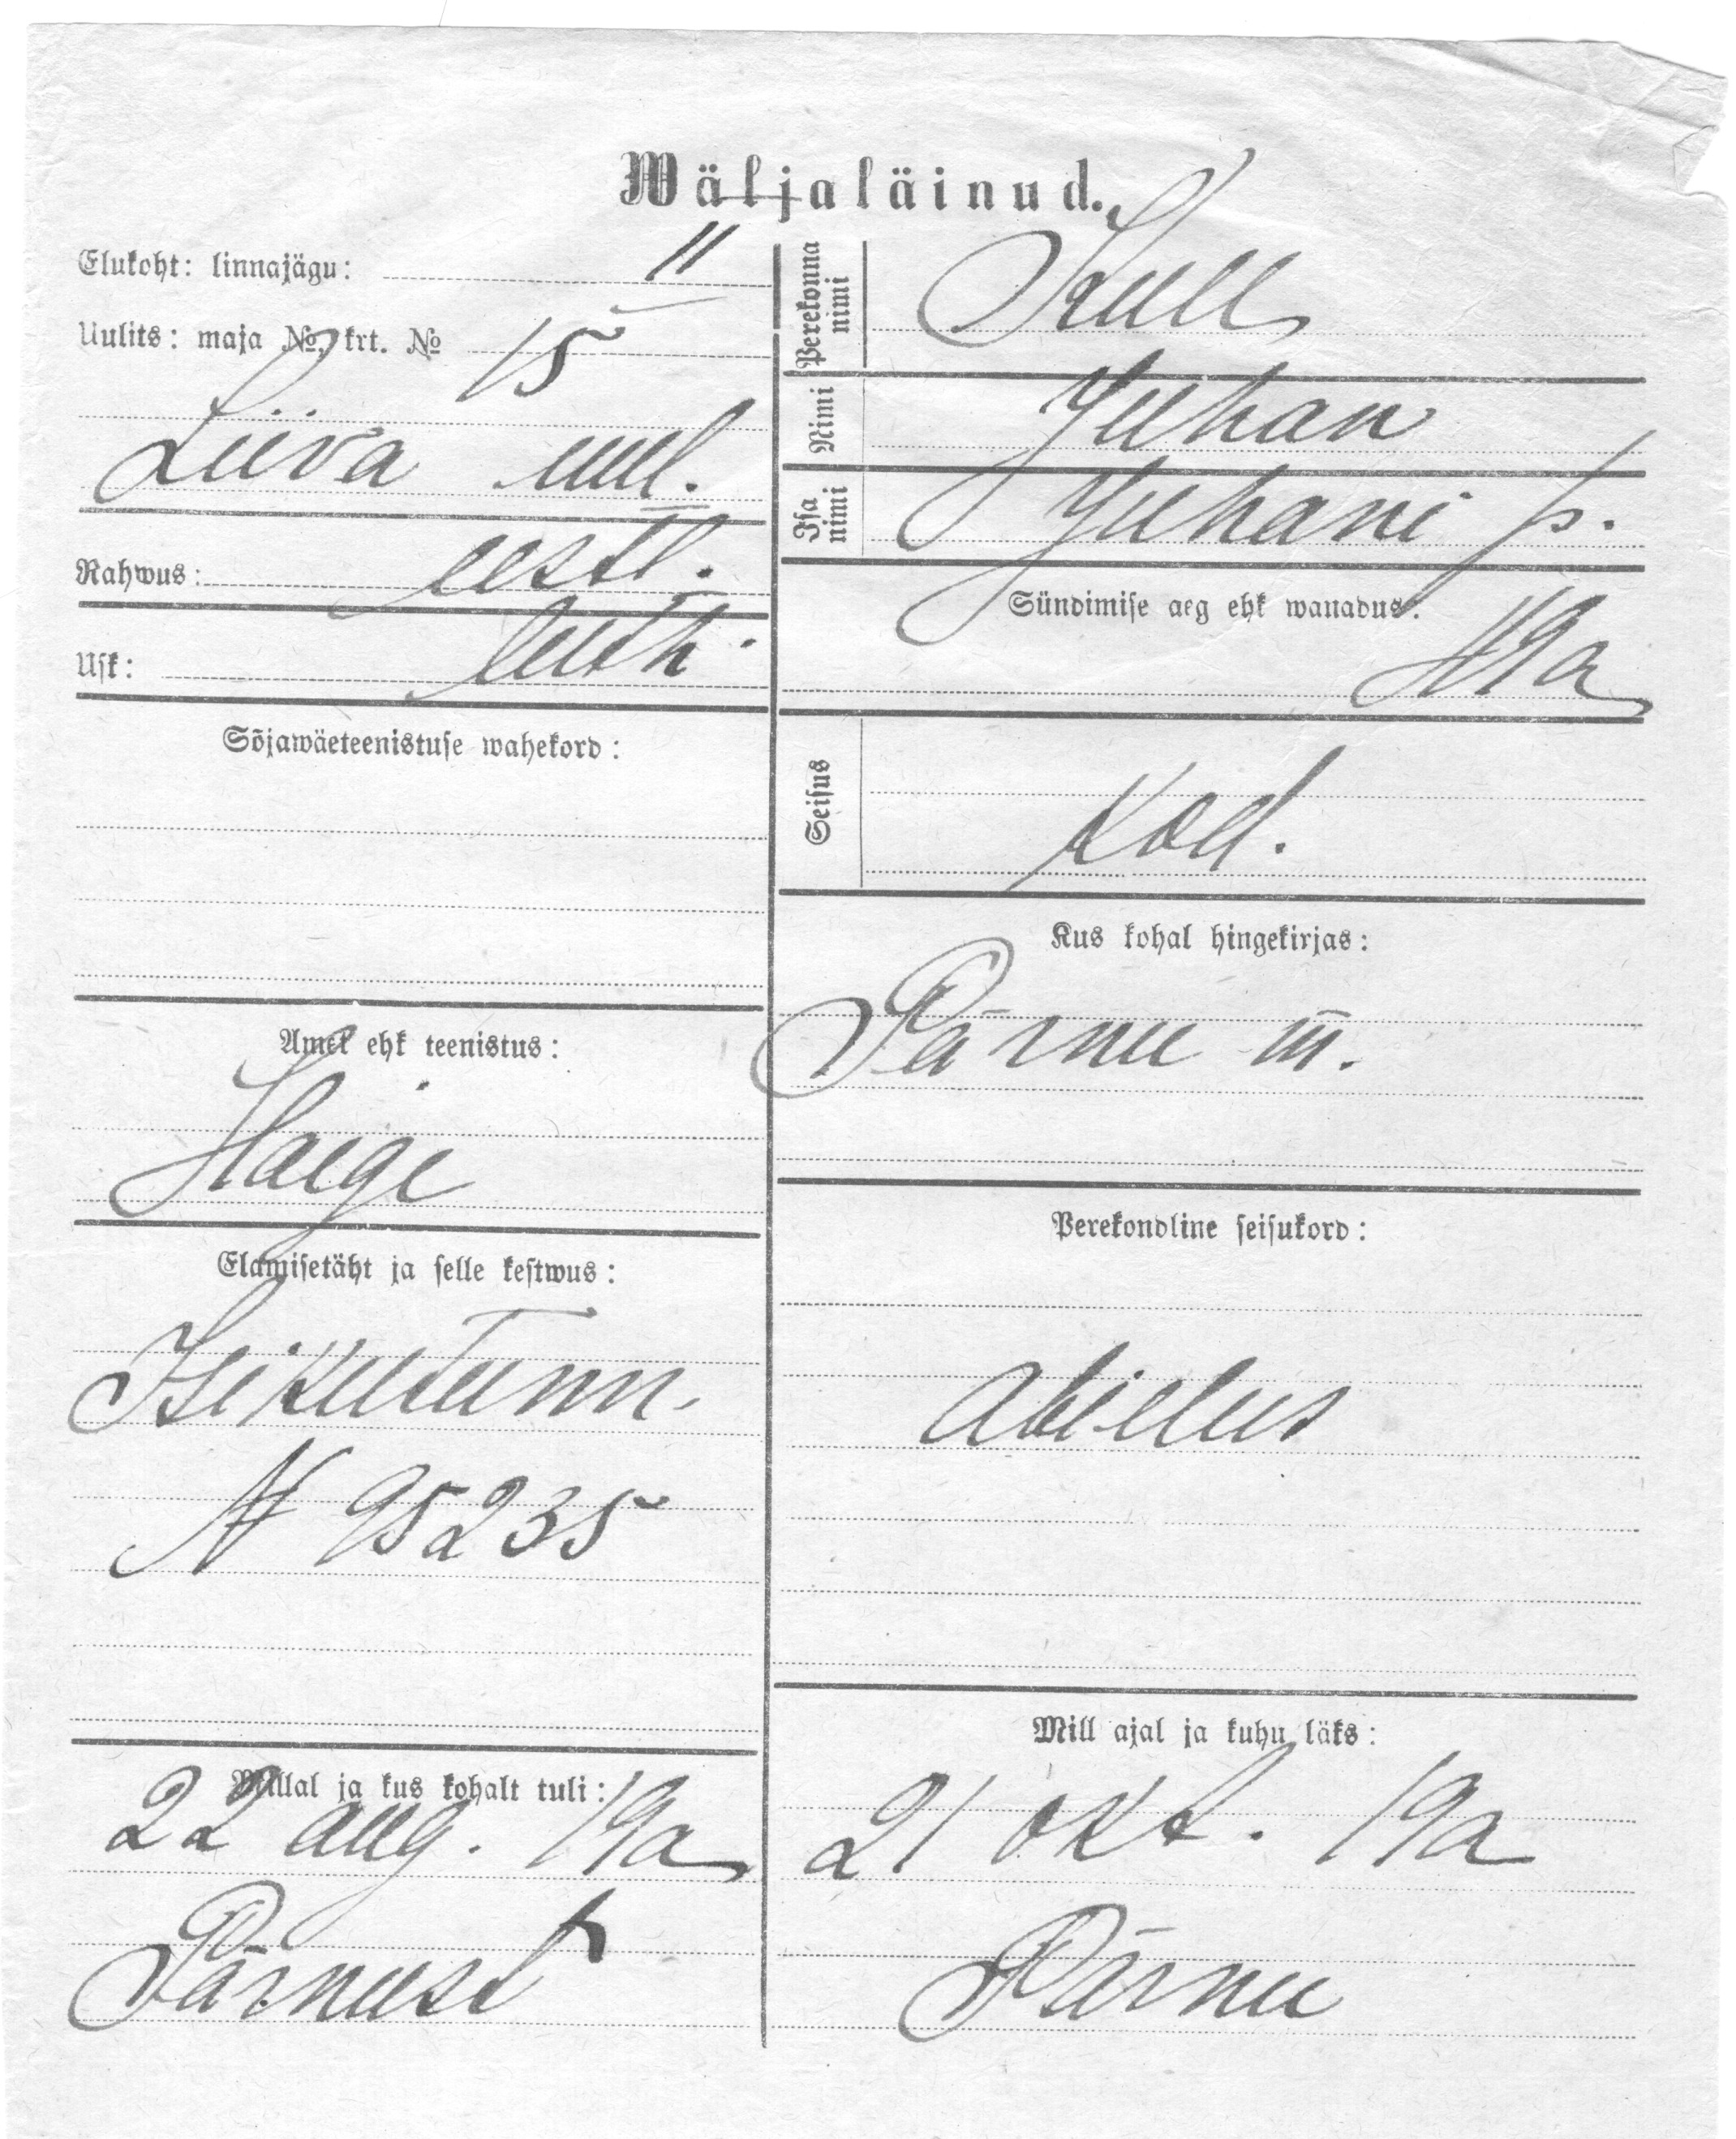 Wäljaläinud.
Elukoht: linnajägu: II
Uulits: maja №, krt. № 15
Liiva uul.
Rahwus: eestl.
Usk: luth.
Sõjawäeteenistuse wahekord:
Amet ehk teenistus:
Haige
Elamisetäht ja selle kestwus:
Isikutunn.
N 95235
Millal ja kus kohalt tuli:
22 aug. 19a
Pärnust
Perekonna nimi Kull
Nimi Juhan
Isa nimi Juhani p.
Sündimise aeg ehk wanadus:
49a
Seisus
kod.
Kus kohal hingekirjas:
Pärnu m.
Perekondline seisukord:
abielus
Mill ajal ja kuhu läks:
21 okt. 19a
Pärnu